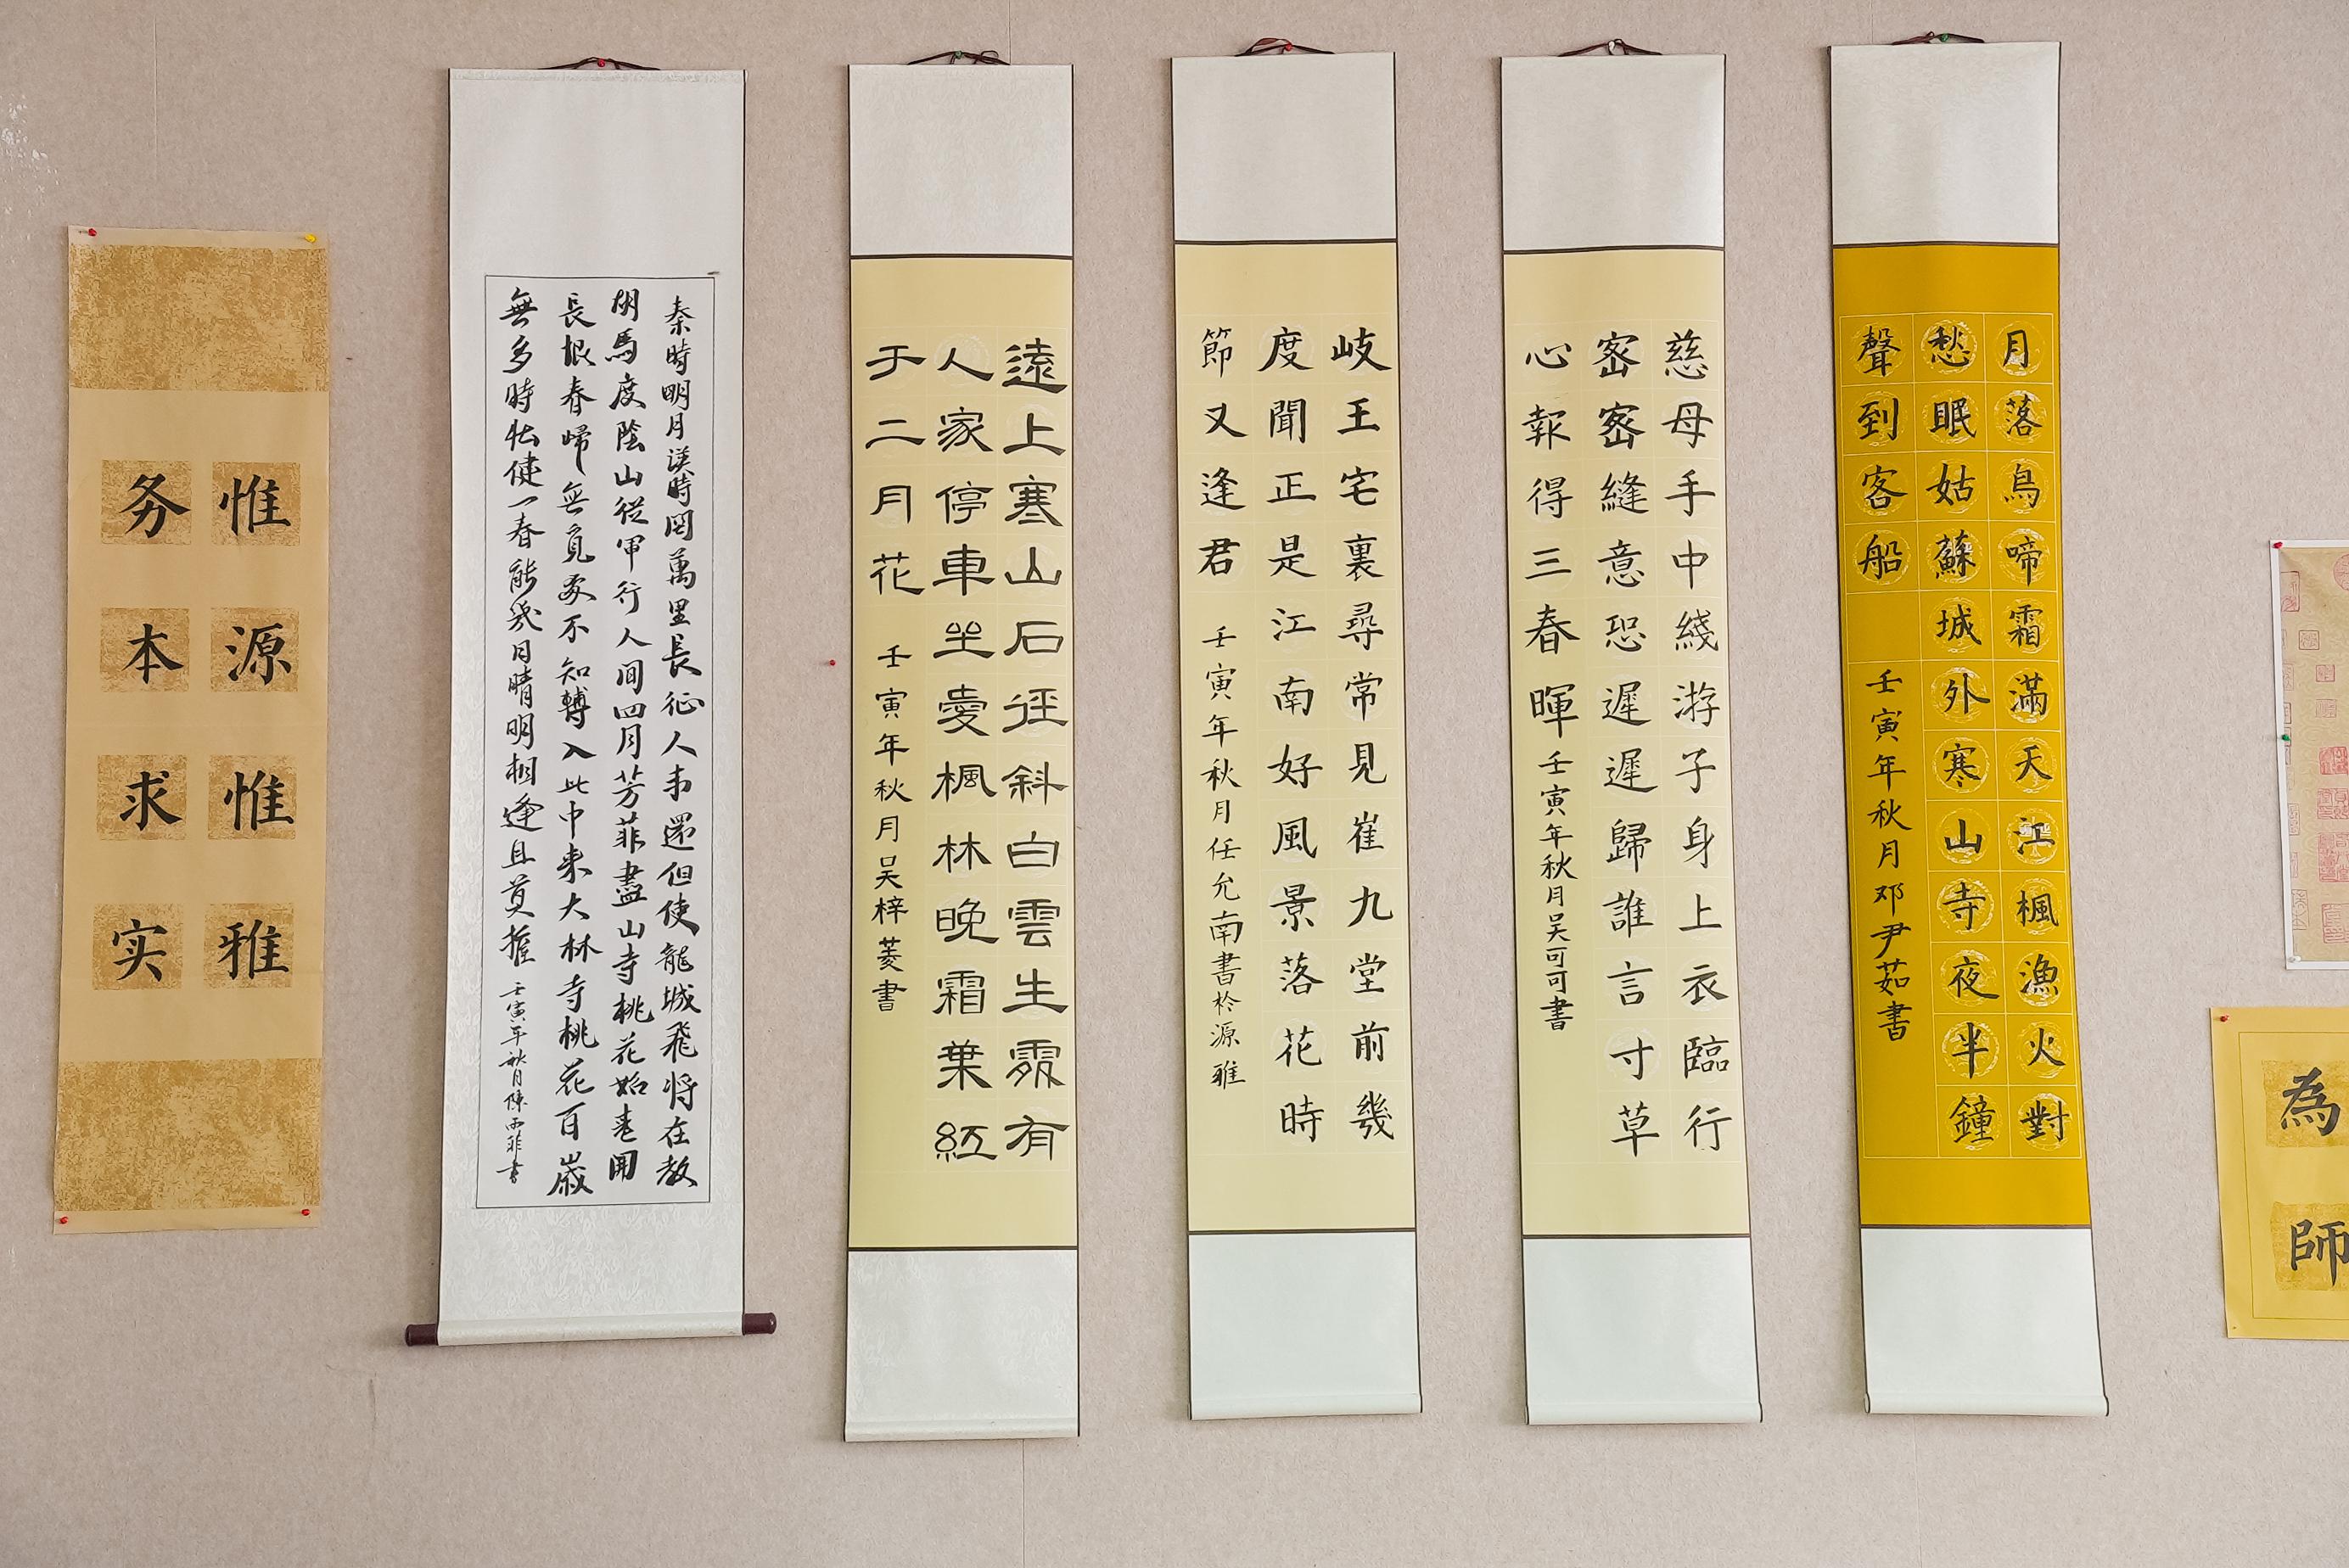 惟源惟雅
务本求实
秦時明月漢時関萬里長征人未還但使龍城飛将在教
胡馬度陰山從軍行人间四月芳菲盡山寺桃花始盛開
長恨春歸無覓處不知轉入此中来大林寺桃花百歲
無多時壮健一春能幾日晴明相逢且莫推
壬寅年秋月陳雨菲書
遠上寒山石徑斜白雲生處有
人家停車坐愛楓林晚霜葉紅
于二月花
壬寅年秋月吴梓菱書
岐王宅裏尋常見崔九堂前幾
度聞正是江南好風景落花時
節又逢君
壬寅年秋月任允南書於源雅
慈母手中綫游子身上衣臨行
密密縫意恐遲遲歸誰言寸草
心報得三春暉
壬寅年秋月吴可可書
月落鳥啼霜滿天江楓漁火對
愁眠姑蘇城外寒山寺夜半鐘
聲到客船
壬寅年秋月邓尹茹書
為師